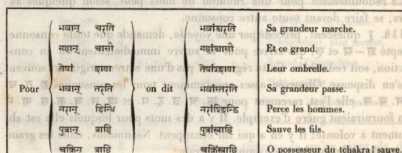 भवान् चरति भवांश्चरति Sa grandeur marche.
महान् चासौ Et ce grand.
तेषां छाया Leur ombrelle.
Pour भवान् तरति on dit भवांस्तरति Sa grandeur passe.
नॄन् छिन्धि Perce les hommes.
पुत्रान् त्राहि Sauve les fils.
चक्रिन् त्राहि चक्रिंस्त्राहि O possesseur du tchakra! sauve.